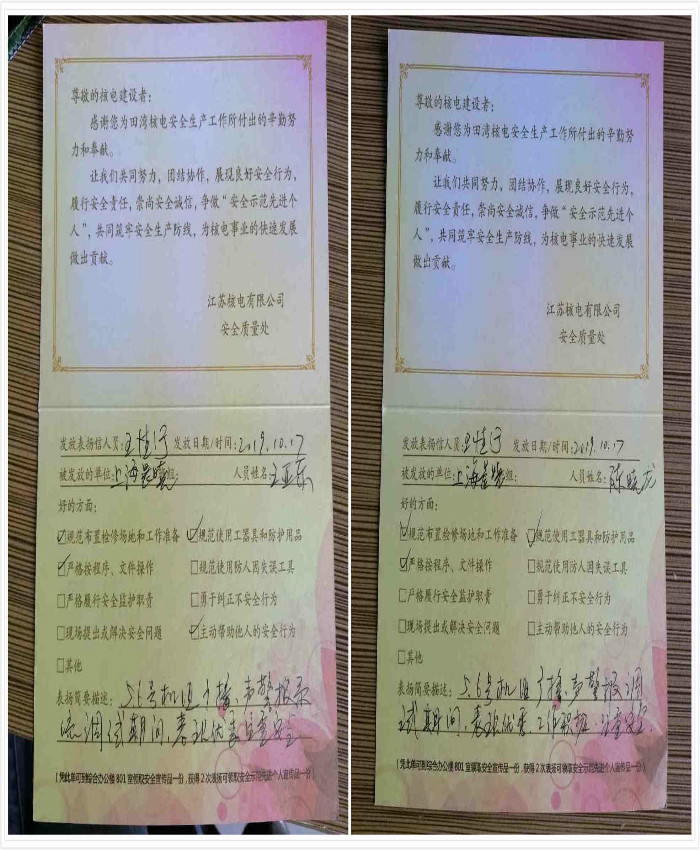 尊敬的核电建设者：
感谢您为田湾核电安全生产工作所付出的辛勤努
力和奉献。
让我们共同努力，团结协作，展现良好安全行为，
履行安全责任，崇尚安全诚信，争做“安全示范先进个
人”，共同筑牢安全生产防线，为核电事业的快速发展
做出贡献。
江苏核电有限公司
安全质量处
发放表扬信人员： 发放日期/时间：2019.10.17
被发放的单位：上海 组： 人员姓名：王亚东
好的方面：
规范布置检修场地和工作准备 规范使用工器具和防护用品
严格按程序、文件操作 规范使用防人因失误工具
严格履行安全监护职责 勇于纠正不安全行为
现场提出或解决安全问题 主动帮助他人的安全行为
其他
表扬简要描述：5.6号机组广播、声警报系
统调试期间，表现优秀 注重安全
（凭此单可到综合办公楼801室领取安全宣传品一份，获得2次表扬可领取安全示范先进个人宣传品一份）
尊敬的核电建设者：
感谢您为田湾核电安全生产工作所付出的辛勤努
力和奉献。
让我们共同努力，团结协作，展现良好安全行为，
履行安全责任，崇尚安全诚信，争做“安全示范先进个
人”，共同筑牢安全生产防线，为核电事业的快速发展
做出贡献。
江苏核电有限公司
安全质量处
发放表扬信人员： 发放日期/时间：2019.10.17
被发放的单位：上海 组： 人员姓名：陈晓龙
好的方面：
规范布置检修场地和工作准备 规范使用工器具和防护用品
严格按程序、文件操作 规范使用防人因失误工具
严格履行安全监护职责 勇于纠正不安全行为
现场提出或解决安全问题 主动帮助他人的安全行为
其他
表扬简要描述：5.6号机组广播、声警报调
试期间，表现优秀，工作积极，注重安全.
（凭此单可到综合办公楼801室领取安全宣传品一份，获得2次表扬可领取安全示范先进个人宣传品一份）